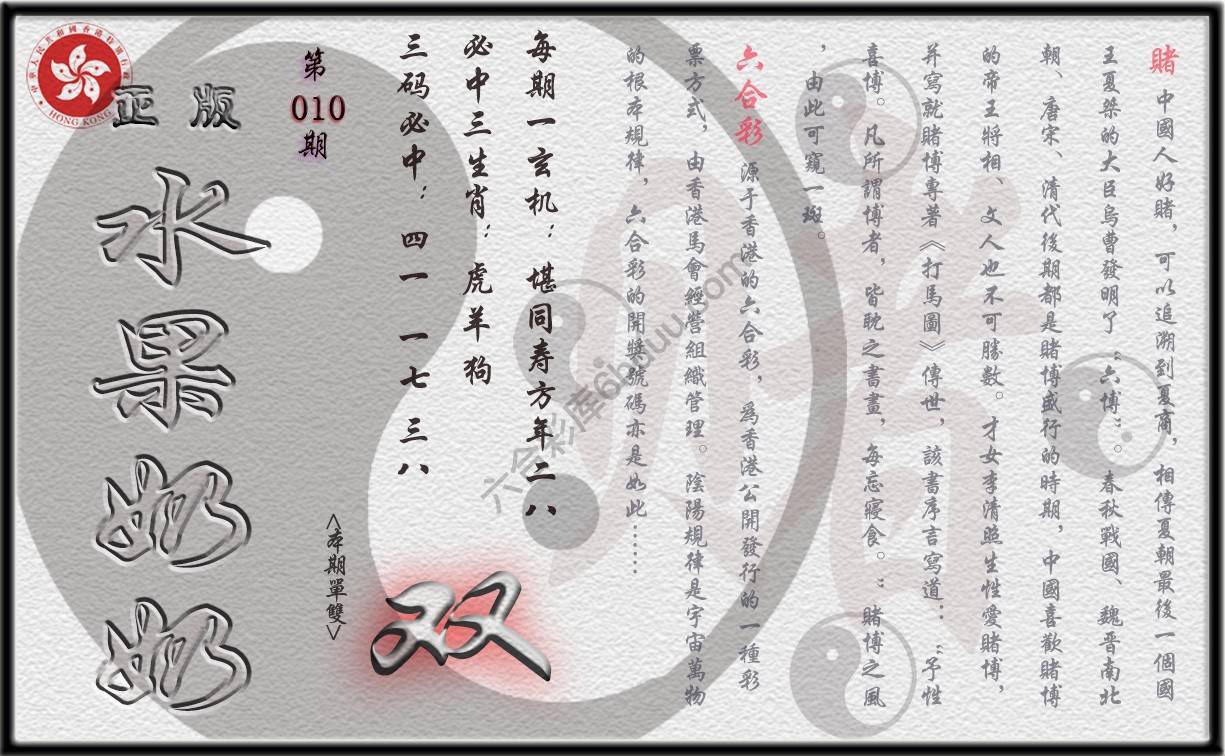 賭 中國人好賭，可以追溯到夏商，相傳夏朝最後一個國
王夏桀的大臣烏曹發明了“六博”。春秋戰國、魏晋南北
朝、唐宋、清代後期都是賭博盛行的時期，中國喜歡賭博
的帝王將相、文人也不可勝數。才女李清照生性愛賭博，
并寫就賭博專著《打馬圖》傳世，該書序言寫道：“予性
喜博。凡所謂博者，皆耽之書畫，每忘寢食。”賭博之風
，由此可窺一斑。
六合彩 源于香港的六合彩，爲香港公開發行的一種彩
票方式，由香港馬會經營組織管理。陰陽規律是宇宙萬物
的根本規律，六合彩的開獎號碼亦是如此……
每期一玄机：堪同寿方年二八
必中三生肖：虎羊狗
三码必中：四一 一七 三八
<本期單雙>
双
第
010
期
正版
水果奶奶
中華人民共和國香港特別行政區
HONG KONG
六合彩库6hduu.com